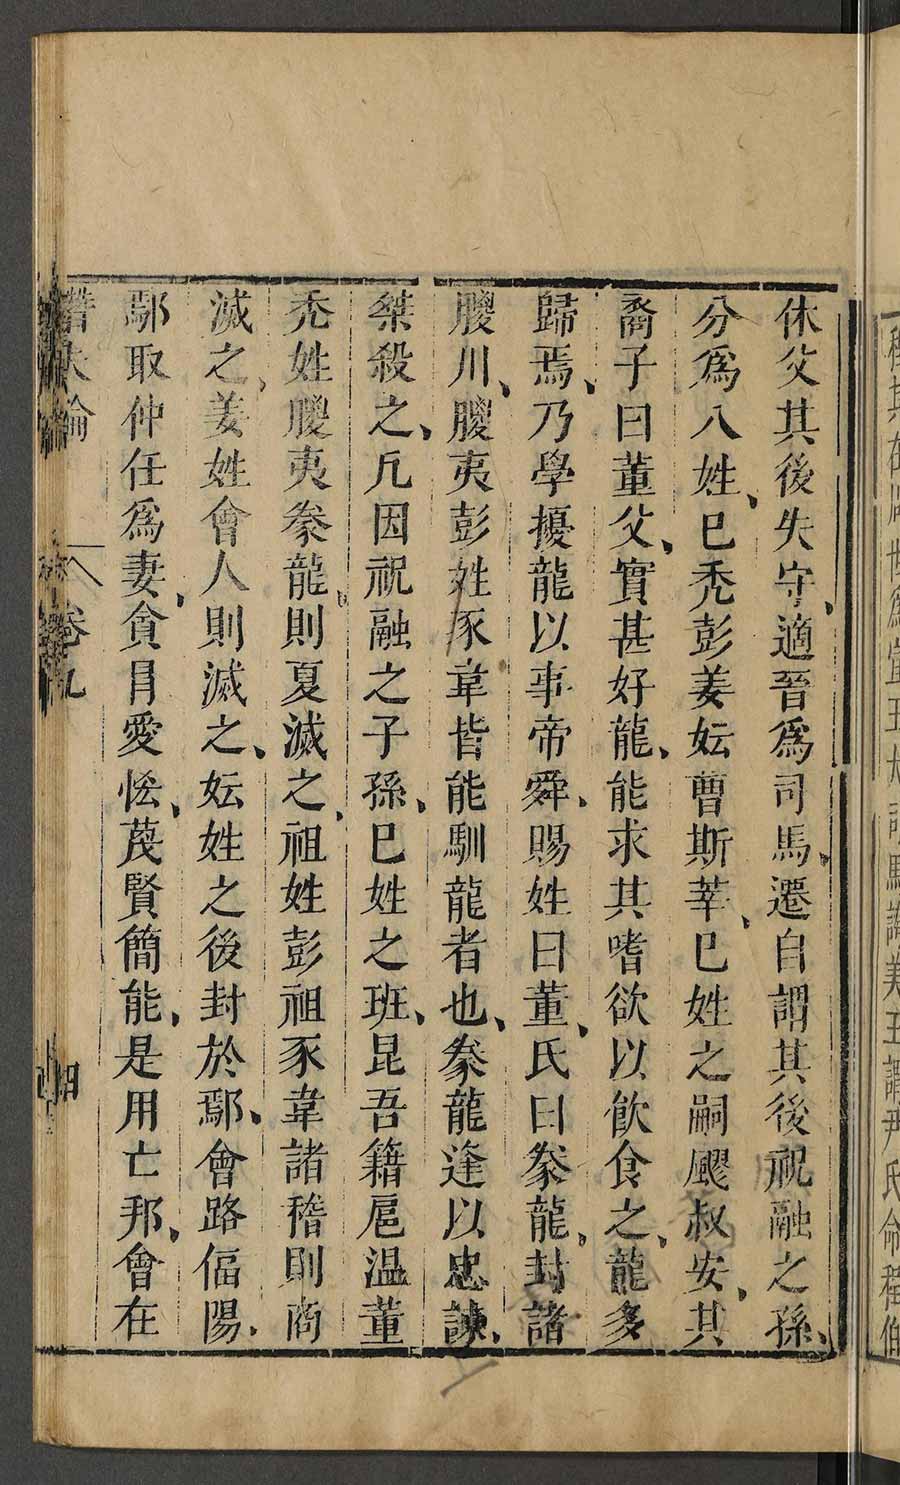 休父其後失守、適晉爲司馬、遷自謂其後祝融之孫、
分爲八姓、巳禿彭姜妘曹斯莘、巳姓之嗣飂叔安、其
裔子曰董父、實甚好龍、能求其嗜欲以飲食之、龍多
歸焉、乃學擾龍以事帝舜、賜姓曰董、氏曰豢龍、封諸
朡川、朡夷彭姓豕韋皆能馴龍者也、豢龍逢以忠諫、
桀殺之、凢因祝融之子孫、巳姓之班、昆吾籍扈温董
禿姓朡夷豢龍則夏滅之、祖姓彭祖豕韋諸稽則商
滅之、姜姓會人則滅之、妘姓之後封於鄢、會路偪陽、
鄢取仲任爲妻、貪冐愛恡、蔑賢簡能、是用亡邦、會在
卷九
四
程其在周世爲宣王大司馬詩美王謂尹氏命程伯